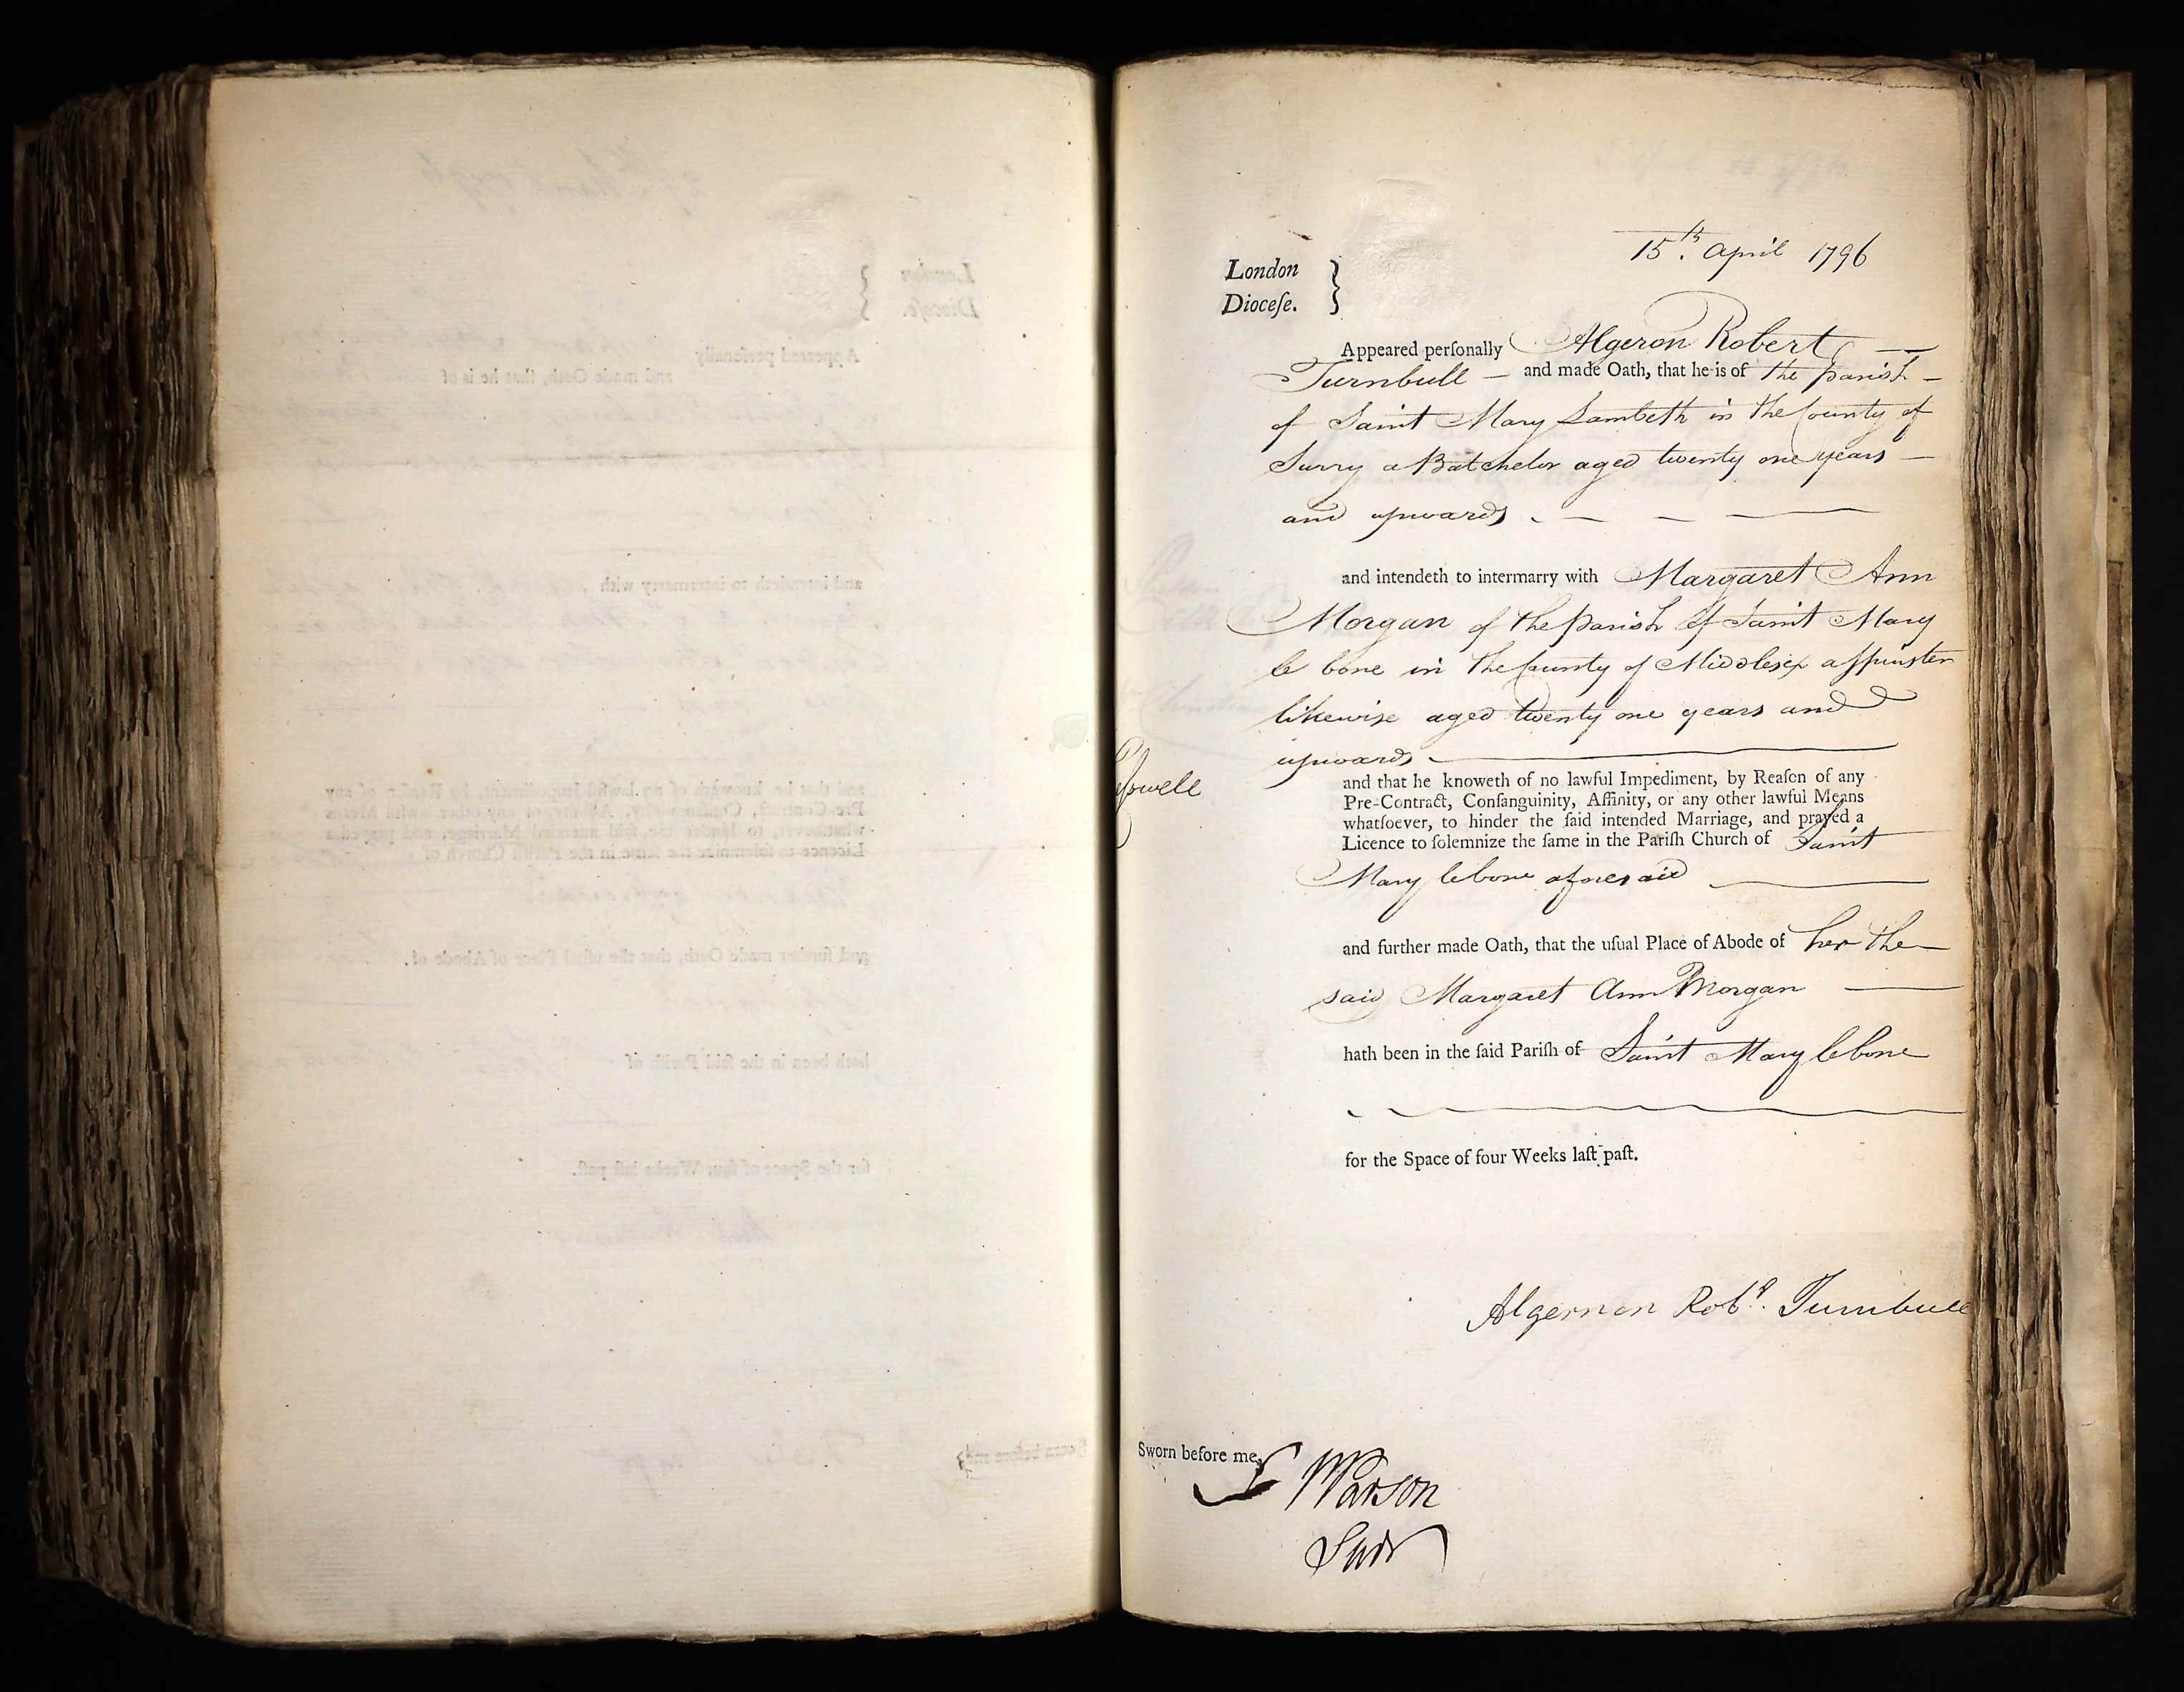 15th. April 1796
London
Dioceſe.
Appeared perſonally Algeron Robert
Turnbull and made Oath, that he is of the parish
of Saint Mary Lambeth in the County of
Surry a Batchelor aged twenty one years
and upwards
and intendeth to intermarry with Margaret Ann
Morgan of the parish of Saint Mary
le bone in the County of Middlesex a Spinster
likewise aged twenty one years and
upwards
and that he knoweth of no lawful Impediment, by Reaſon of any
Pre-Contract, Conſanguinity, Affinity, or any other lawful Means
whatſoever, to hinder the ſaid intended Marriage, and prayed a
Licence to ſolemnize the ſame in the Pariſh Church of Saint
Mary lebone aforesaid
and further made Oath, that the uſual Place of Abode of her the
said Margaret Ann Morgan
hath been in the ſaid Pariſh of Saint Mary lebone
for the Space of four Weeks laſt paſt.
Algernon Robt. Turnbull
Sworn before me,